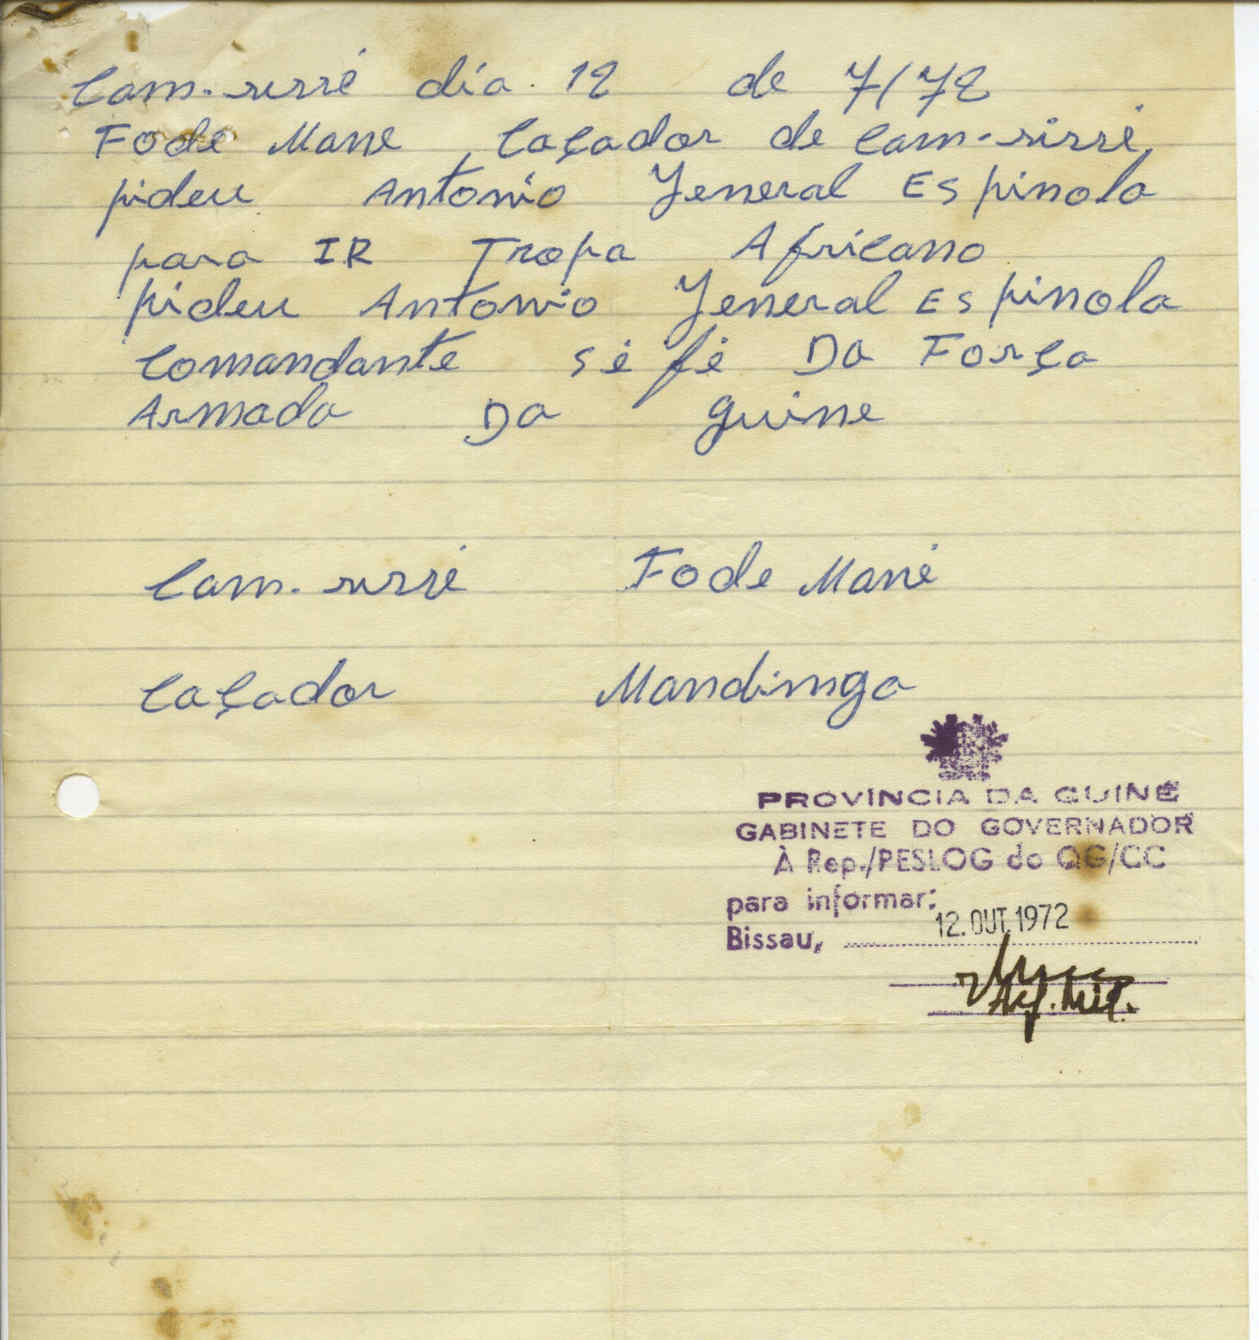 Cam-sirré día 12 de 7/72
Fode Mane, Caçador de Cam-sirré,
pideu Antonio Jeneral Espinola
para IR Tropa Africano
pideu Antonio Jeneral Espinola
Comandante séfé Da Força
Armada Da guine
Cam-sirré Fode Mané
Caçador Mandimga
PROVÍNCIA DA GUINÉ
GABINETE DO GOVERNADOR
À Rep./PESLOG do QG/CC
para informar:
Bissau, 12.OUT.1972